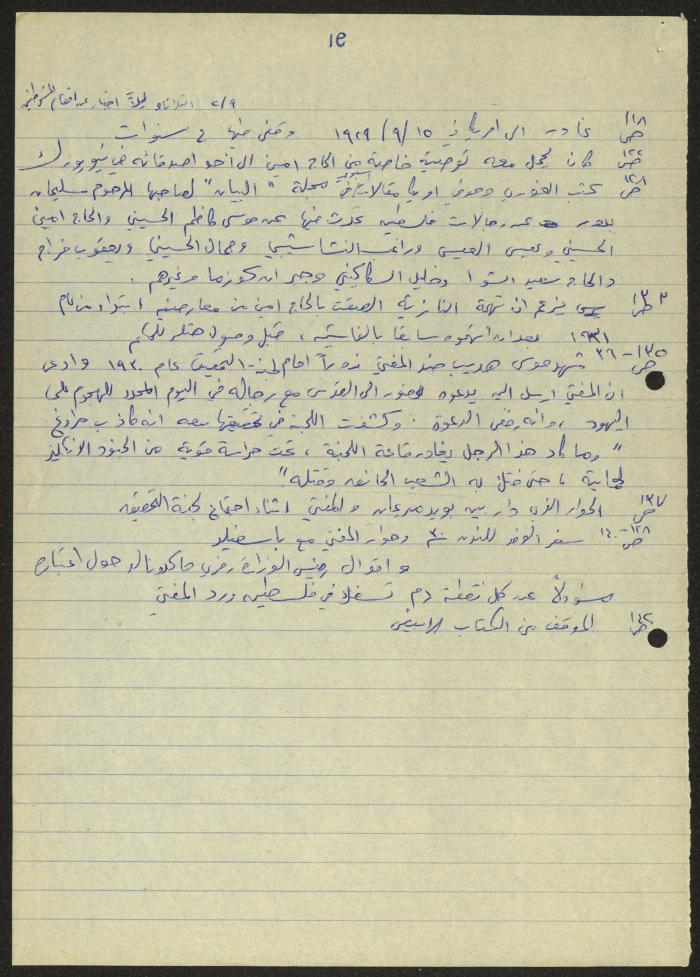 ١٩
٢/٩ الثلاثاء ليلاً اخبار عن
ص ١١٨ غادر الى امريكا في ١٥ /٩/ ١٩٢٩ وقضى فيها ٣ سنوات
ص ١٢٢ كان يحمل معه توصية خاصة من الحاج امين الى أحد اصدقائه في نيويورك
ص ١٢٨ كتب الغوري وهو في امريكا مقالات في مجلة "البيان" لصاحبها المرحوم سليمان
بدور عن رجالات فلسطين تحدث فيها عن موسى كاظم الحسيني والحاج امين
الحسيني وعيسى العيسى وراغب النشاشيبي وجمال الحسيني ويعقوب فراج
والحاج سعيد الشوا وخليل السكاكيني وجبران كوزما وغيرهم.
ص ١٣٢ يزعم ان تهمة النازية الصقت بالحاج امين من معارضيه ابتداء من عام
١٩٣١ بعد ان اتهموه سابقا بالفاشية، قبل وصول هتلر للحكم
ص ١٣٥-٣٦ شهد موسى هديب ضد المفتي زوراً امام لجنة التحقيق عام ١٩٣٠ وادعى
ان المفتي ارسل اليه يدعوه للحضور الى القدس مع رجاله في اليوم المحدد للهجوم على
اليهود، وانه رفض الدعوة. وكشفت اللجنة في تحقيقها معه انه كاذب مراوغ
"وما كاد هذا الرجل يغادر قاعة اللجنة، تحت حراسة قوية من الجنود الانكليز
لحمايته، حتى فتك به الشعب الحانق وقتله"
ص ١٣٧ الحوار الذي دار بين بويد مريمان والمفتي اثناء اجتماع لجنة التحقيق
ص ١٣٨-١٤٠ سفر الوفد للندن ٣٠ وحوار المفتي مع باسفيلد
واقوال رئيس الوزارة رمزي ماكدونالد حول اعتباره
مسؤولاً عن كل نقطة دم تسفك في فلسطين ورد المفتي
ص ١٤٢ الموقف من الكتاب الابيض